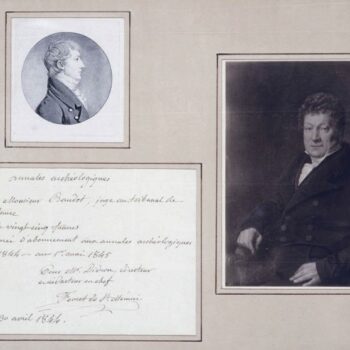 annales archéologiques
Monsieur Baudot, juge au tribunal de
vingt-cinq francs
d'abonnement aux annales archéologiques
1844 au 1er mai 1845
Pour Mr. Didron, directeur
en chef
Fevret de St Mémin
30 avril 1844.